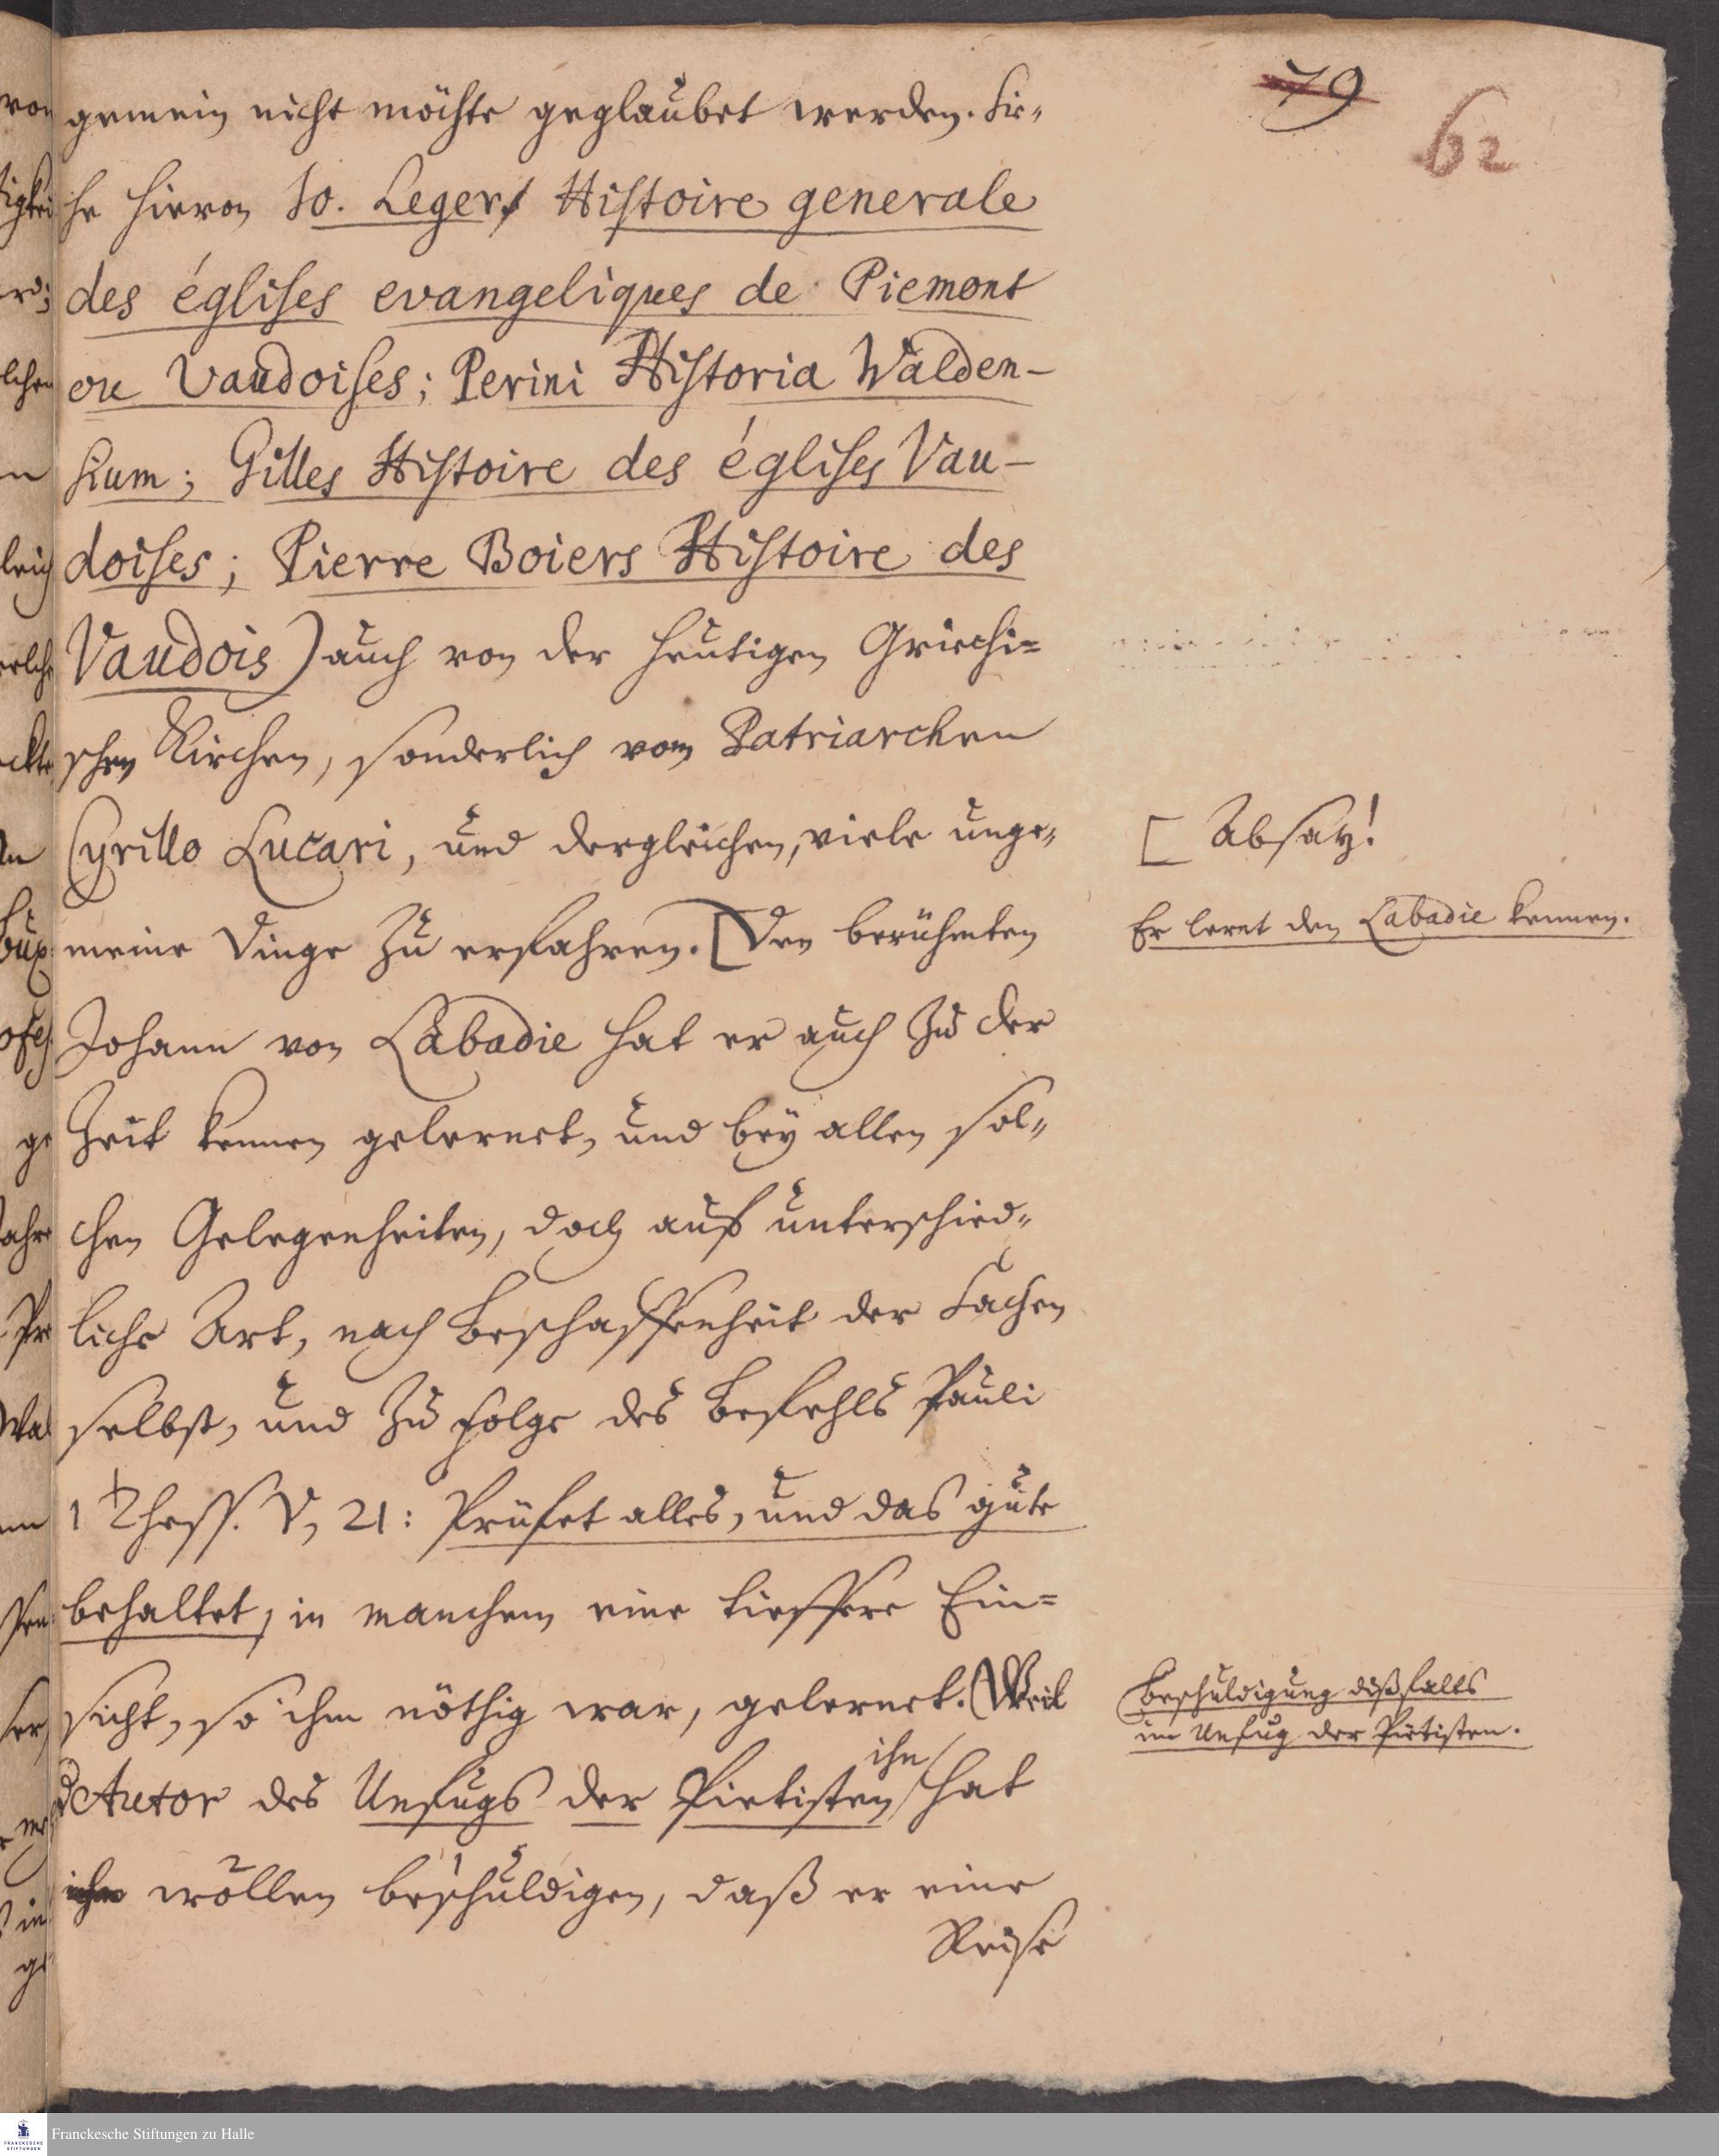 79
62
gemein nicht möchte geglaubet werden. Sie„
he hievon Jo. Legers Histoire generale
des églises evangeliques de Piemont
ou Vaudoises; Perini Historia Walden-
sium; Gilles Histoire des églises Vau-
doises; Pierre Boiers Histoire des
Vaudois) auch von der heutigen Griechi=
schen Kirchen, sonderlich vom Patriarchen
Cyrillo Lucari, und dergleichen, viele unge„
[ Absatz!
meine Dinge zu erfahren. [Den berühmten
Er lernt den Labadie kennen.
Johann von Labadie hat er auch zu der
Zeit kennen gelernet, und bey allen sol„
chen Gelegenheiten, doch auf unterschied„
liche Art, nach Beschaffenheit der Sachen
selbst, und zu folge des Befehls Pauli
1 Thess. V, 21: Prüfet alles, und das gute
behaltet, in manchem eine tieffere Ein=
sicht, so ihm nöthig war, gelernet. (Weil
Beschuldigung dißfalls
im Unfug der Pietisten.
d Autor des Unfugs der Pietisten ihn hat
wollen beschuldigen, daß er eine
Reise
Franckesche Stiftungen zu Halle
FRANCKESCHE
STIFTUNGEN